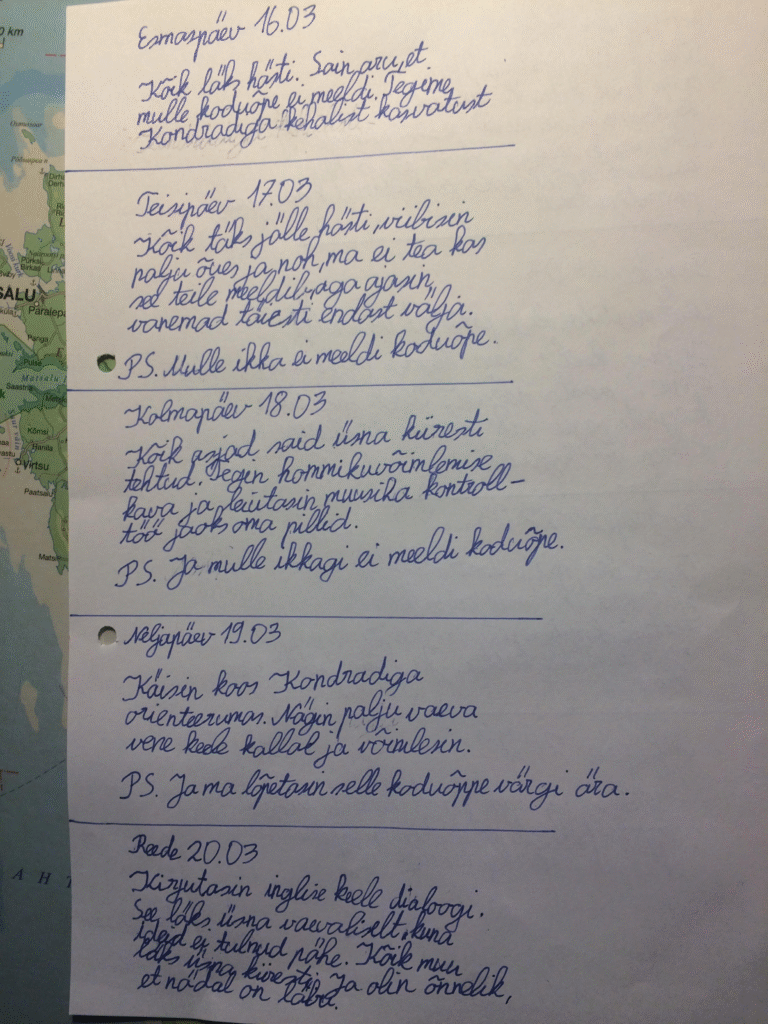 Esmaspäev 16.03
Kõik läks hästi. Sain aru, et
mulle koduõpe ei meeldi. Tegime
Kondradiga kehalist kasvatust
Teisipäev 17.03
Kõik täks jälle hästi, viibisin
palju õues ja noh, ma ei tea kas
see teile meeldib, aga ajasin
vanemad täiesti endast välja.
PS. Mulle ikka ei meeldi koduõpe.
Kolmapäev 18.03
Kõik asjad said üsna kiiresti
tehtud. Tegin hommikuvõimlemise
kava ja leiutasin muusika kontroll-
töö jaoks oma pillid.
PS. Ja mulle ikkagi ei meeldi koduõpe.
Neljapäev 19.03
Käisin koos Kondradiga
orienteerumas. Nägin palju vaeva
vene keele kallal ja võimlesin.
PS. Ja ma lõpetasin selle koduõppe värgi ära.
Reede 20.03
Kirjutasin inglise keele dialoogi.
See läks üsna vaevaliselt, kuna
ideid ei tulnud pähe. Kõik muu
läks üsna kiiresti. Ja olin õnnelik,
et nädal on läbi.
0 km
SALU
Paralepa
Panga
Saastna
Matsalu
Kõmsi
Hanila
Virtsu
Paatsalu
A H T